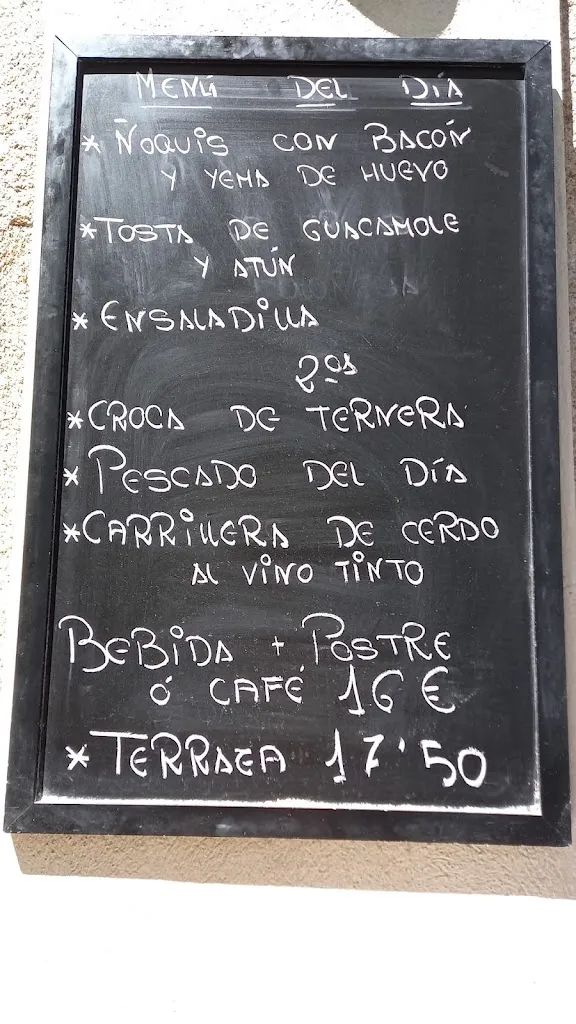 MENÚ DEL DÍA
* ÑOQUIS CON BACÓN
Y YEMA DE HUEVO
* TOSTA DE GUACAMOLE
Y ATÚN
* ENSALADILLA
2ºs
* CROCA DE TERNERA
* PESCADO DEL DÍA
* CARRILLERA DE CERDO
AL VINO TINTO
BEBIDA + POSTRE
Ó CAFÉ 16 €
* TERRAZA 17'50